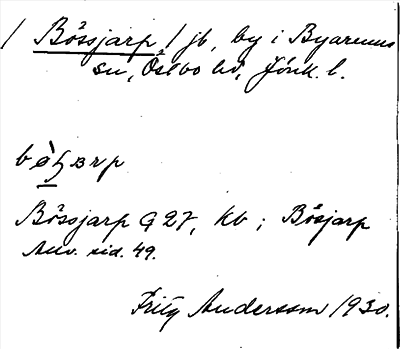 / Bössjarp / jb, by i Byarums
sn, Östbo hd, Jönk. l.
Bössjarp G 27, kb; Bösjarp
Anv. sid. 49.
Fritz Andersson 1930.